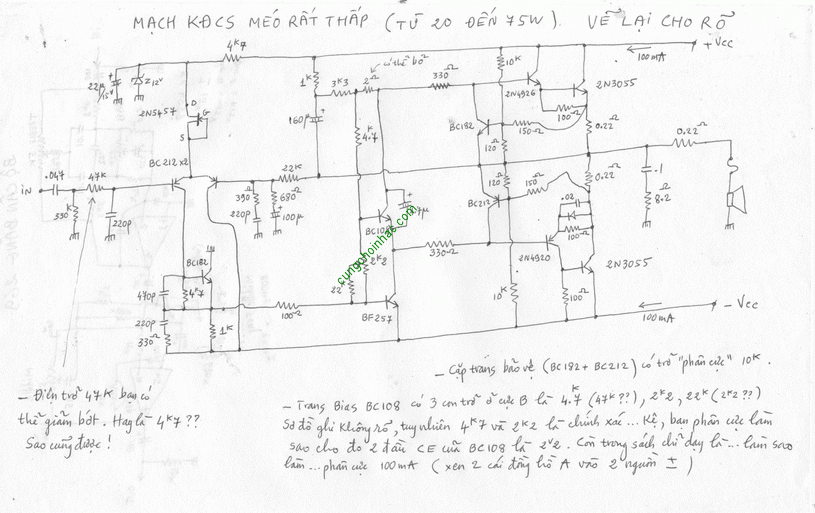 MẠCH KĐCS MÉO RẤT THẤP (TỪ 20 ĐẾN 75W). VẼ LẠI CHO RÕ
4K7
+Vcc
100mA
10K
có thể bỏ
1K
3K3
2Ω
330Ω
2N4926
2N3055
22µ
15V
Z12V
D
2N5457
G
S
160µ
4.7K
BC182
100Ω
150Ω
0.22Ω
120Ω
0.22Ω
BC212x2
22K
.047
47K
IN
330K
220p
390Ω
680Ω
220p
100µ
120Ω
150Ω
0.22Ω
.1
8.2Ω
BC212
.02
cungchoinhac.com
100Ω
BC182
1µ
2K2
330Ω
2N4920
2N3055
470p
4K7
22K
10K
100Ω
220p
330Ω
1K
100Ω
BF257
100mA
-Vcc
- Cặp trans bảo vệ (BC182 + BC212) có trở "phân cực" 10K.
- Điện trở 47K bạn có
thể giảm bớt. Hay là 4K7 ??
Sao cũng được !
- Trans Bias BC108 có 3 con trở ở cực B là 4.7K (47K ??), 2K2, 22K (2K2 ??)
Sơ đồ ghi không rõ, tuy nhiên 4K7 và 2K2 là chính xác... Kệ, bạn phân cực làm
sao cho đo 2 đầu CE của BC108 là 2V2. Còn trong sách chỉ dạy là... làm sao
làm... phân cực 100mA (xen 2 cái đồng hồ A vào 2 nguồn ±)